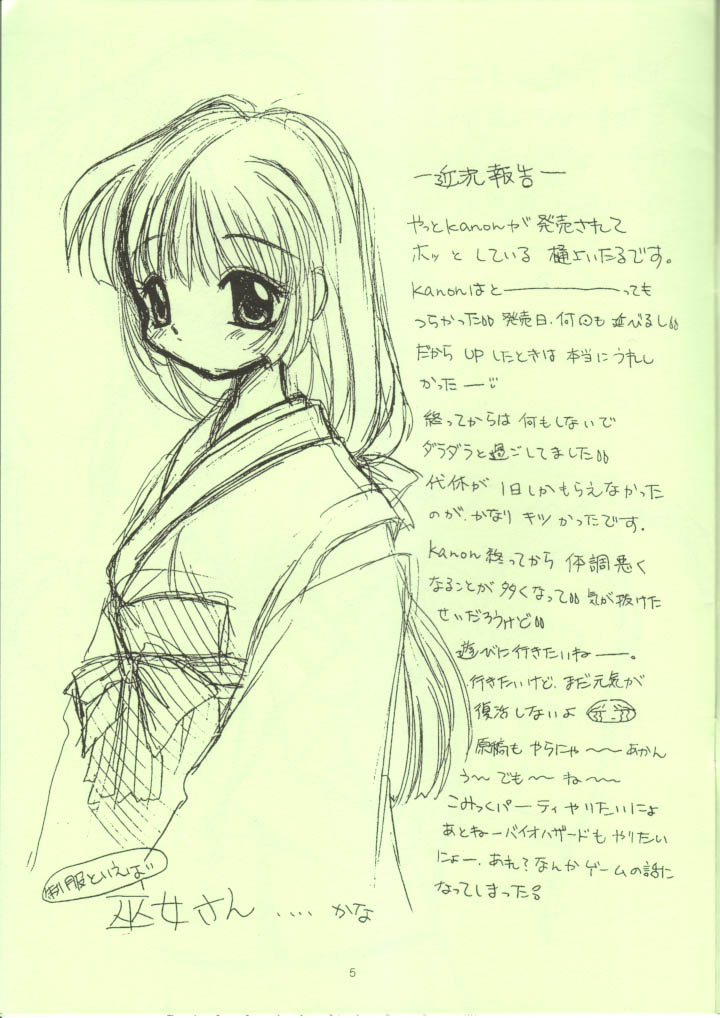 ー近況報告ー
やっとkanonが発売されて
ホッとしている 樋上いたるです。
kanonはと―――――っても
つらかった 発売日、何回も延びるし
だから UPしたときは 本当にうれし
かったー
終ってからは 何もしないで
ダラダラと過ごしてました
代休が 1日しかもらえなかった
のが、かなり キツかったです。
kanon終ってから 体調悪く
なることが 多くなって 気が抜けた
せいだろうけど
遊びに行きたいねー。
行きたいけど、まだ元気が
復活しないよ
原稿も やらにゃ〜〜あかん
う〜 でも〜 ね〜〜
こみっくパーティやりたいにょ
あとねーバイオハザードも やりたい
にょー、あれ?なんか ゲームの話に
なってしまった
制服といえば
巫女さん ‥‥ かな
5